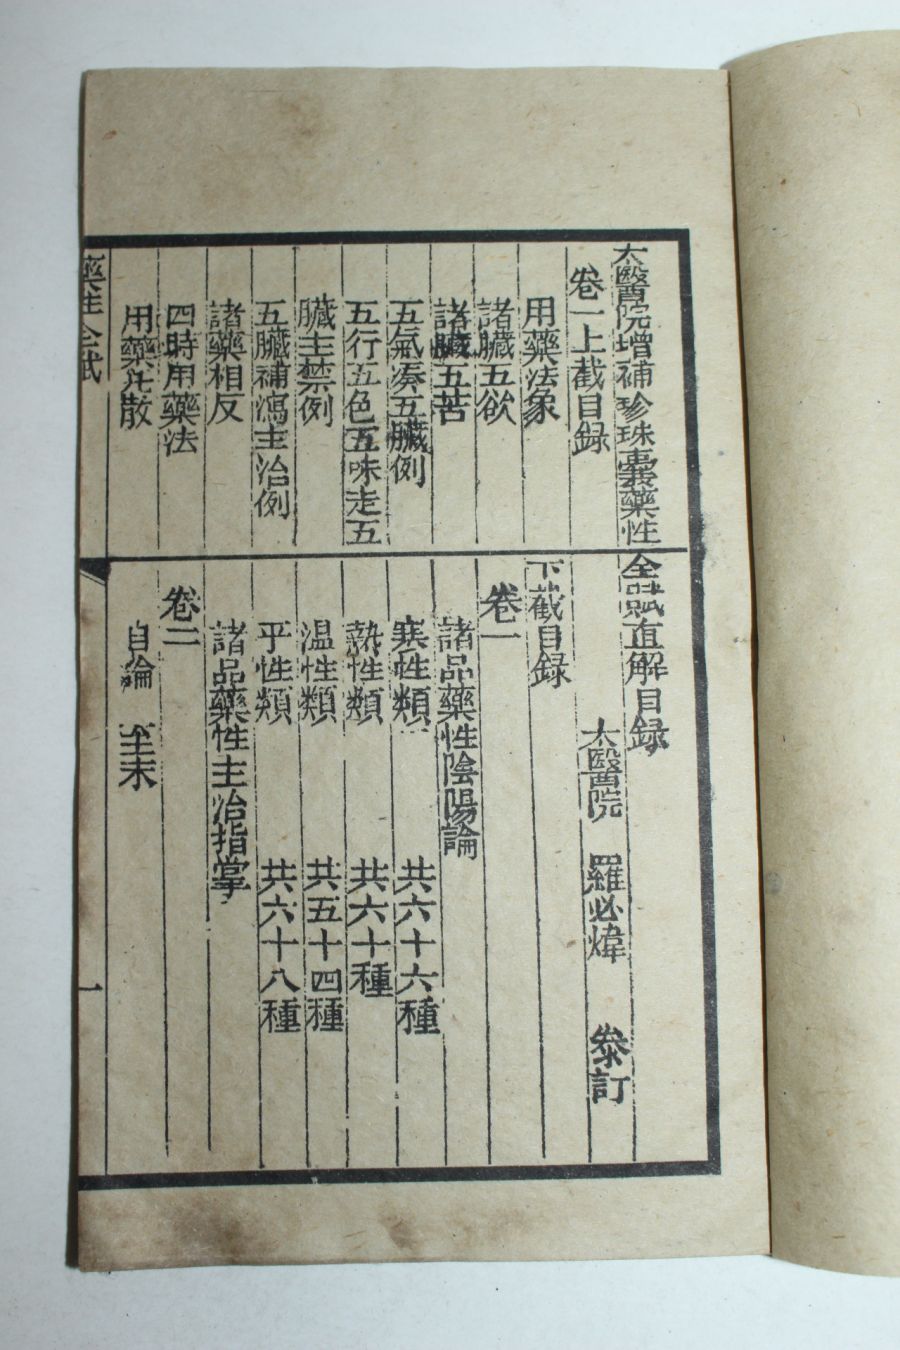 太醫院增補珍珠囊藥性全賦直解目錄
卷一上截目録
用藥法象
諸臟五欲
諸臟五苦
五氣凑五臟例
五行五色五味走五
臟主禁例
五臟補瀉主治例
諸藥相反
四時用藥法
用藥丸散
太醫院 羅必煒 叅訂
下截目録
卷一
諸品藥性陰陽論
寒性類 共六十六種
熱性類 共六十種
温性類 共五十四種
平性類 共六十八種
諸品藥性主治指掌
卷二
自論 至末
藥性全賦
一